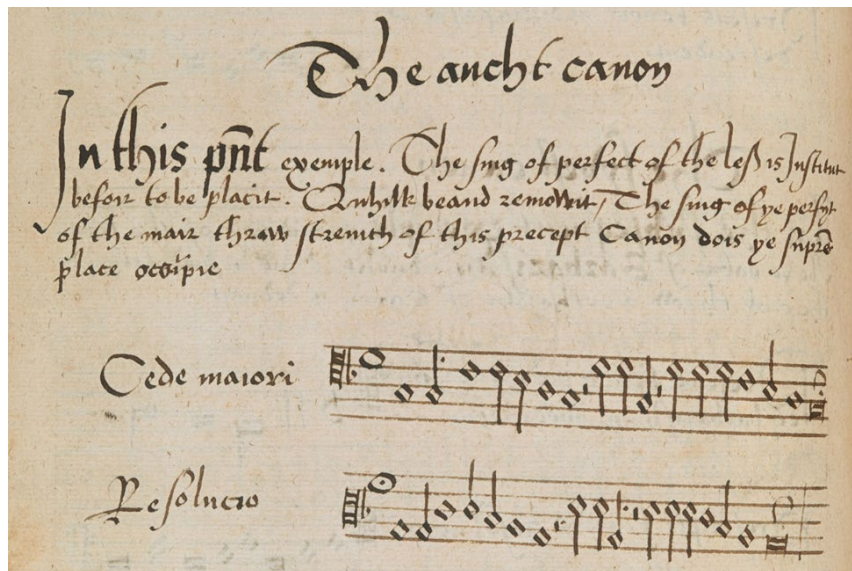 The aucht canon
In this pñt exemple. The sing of perfect of the leß is Institut
befoir to be placit. Quhilk beand remowit, The sing of ye perfyt
of the mair throw strenth of this precept Canon dois ye suprē
place occipie
Cede maiori
Resolucio